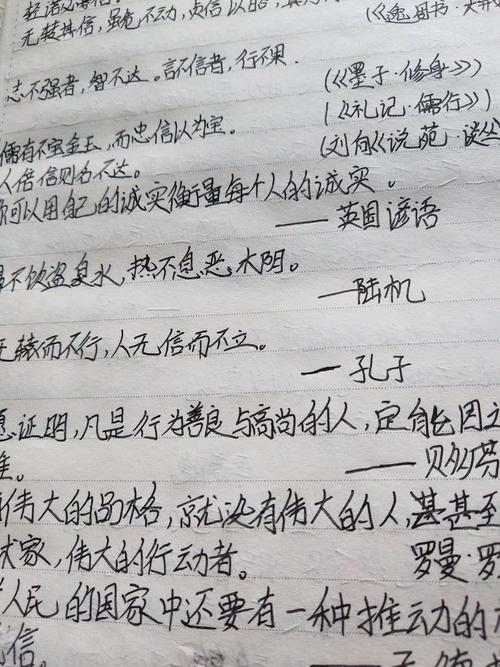 轻诺必寡信。
无转其信,虽危不动,贞信以昭,其 (《逸周书·大
志不强者,智不达。言不信者,行不果. (《墨子·修身》)
儒有不宝金玉,而忠信以为宝。 (《礼记·儒行》)
人倍信则名不达。 (刘向《说苑·谈丛
你可以用自己的诚实衡量每个人的诚实。
——英国谚语
渴不饮盗泉水,热不息恶木阴。
—陆机
无辕而不行,人无信而不立。
—孔子
愿证明,凡是行为善良与高尚的人,定能因之
难。
——贝多芬
伟大的品格,就没有伟大的人,甚甚至
术家,伟大的行动者。 罗曼·罗
人民的国家中还要有一种推动的
信。